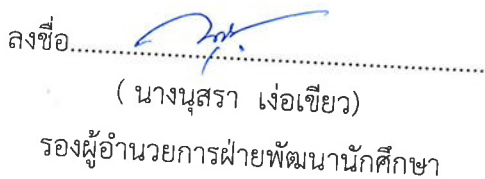 ลงชื่อ......................................................................
( นางนุสรา เง่อเขียว)
รองผู้อำนวยการฝ่ายพัฒนานักศึกษา